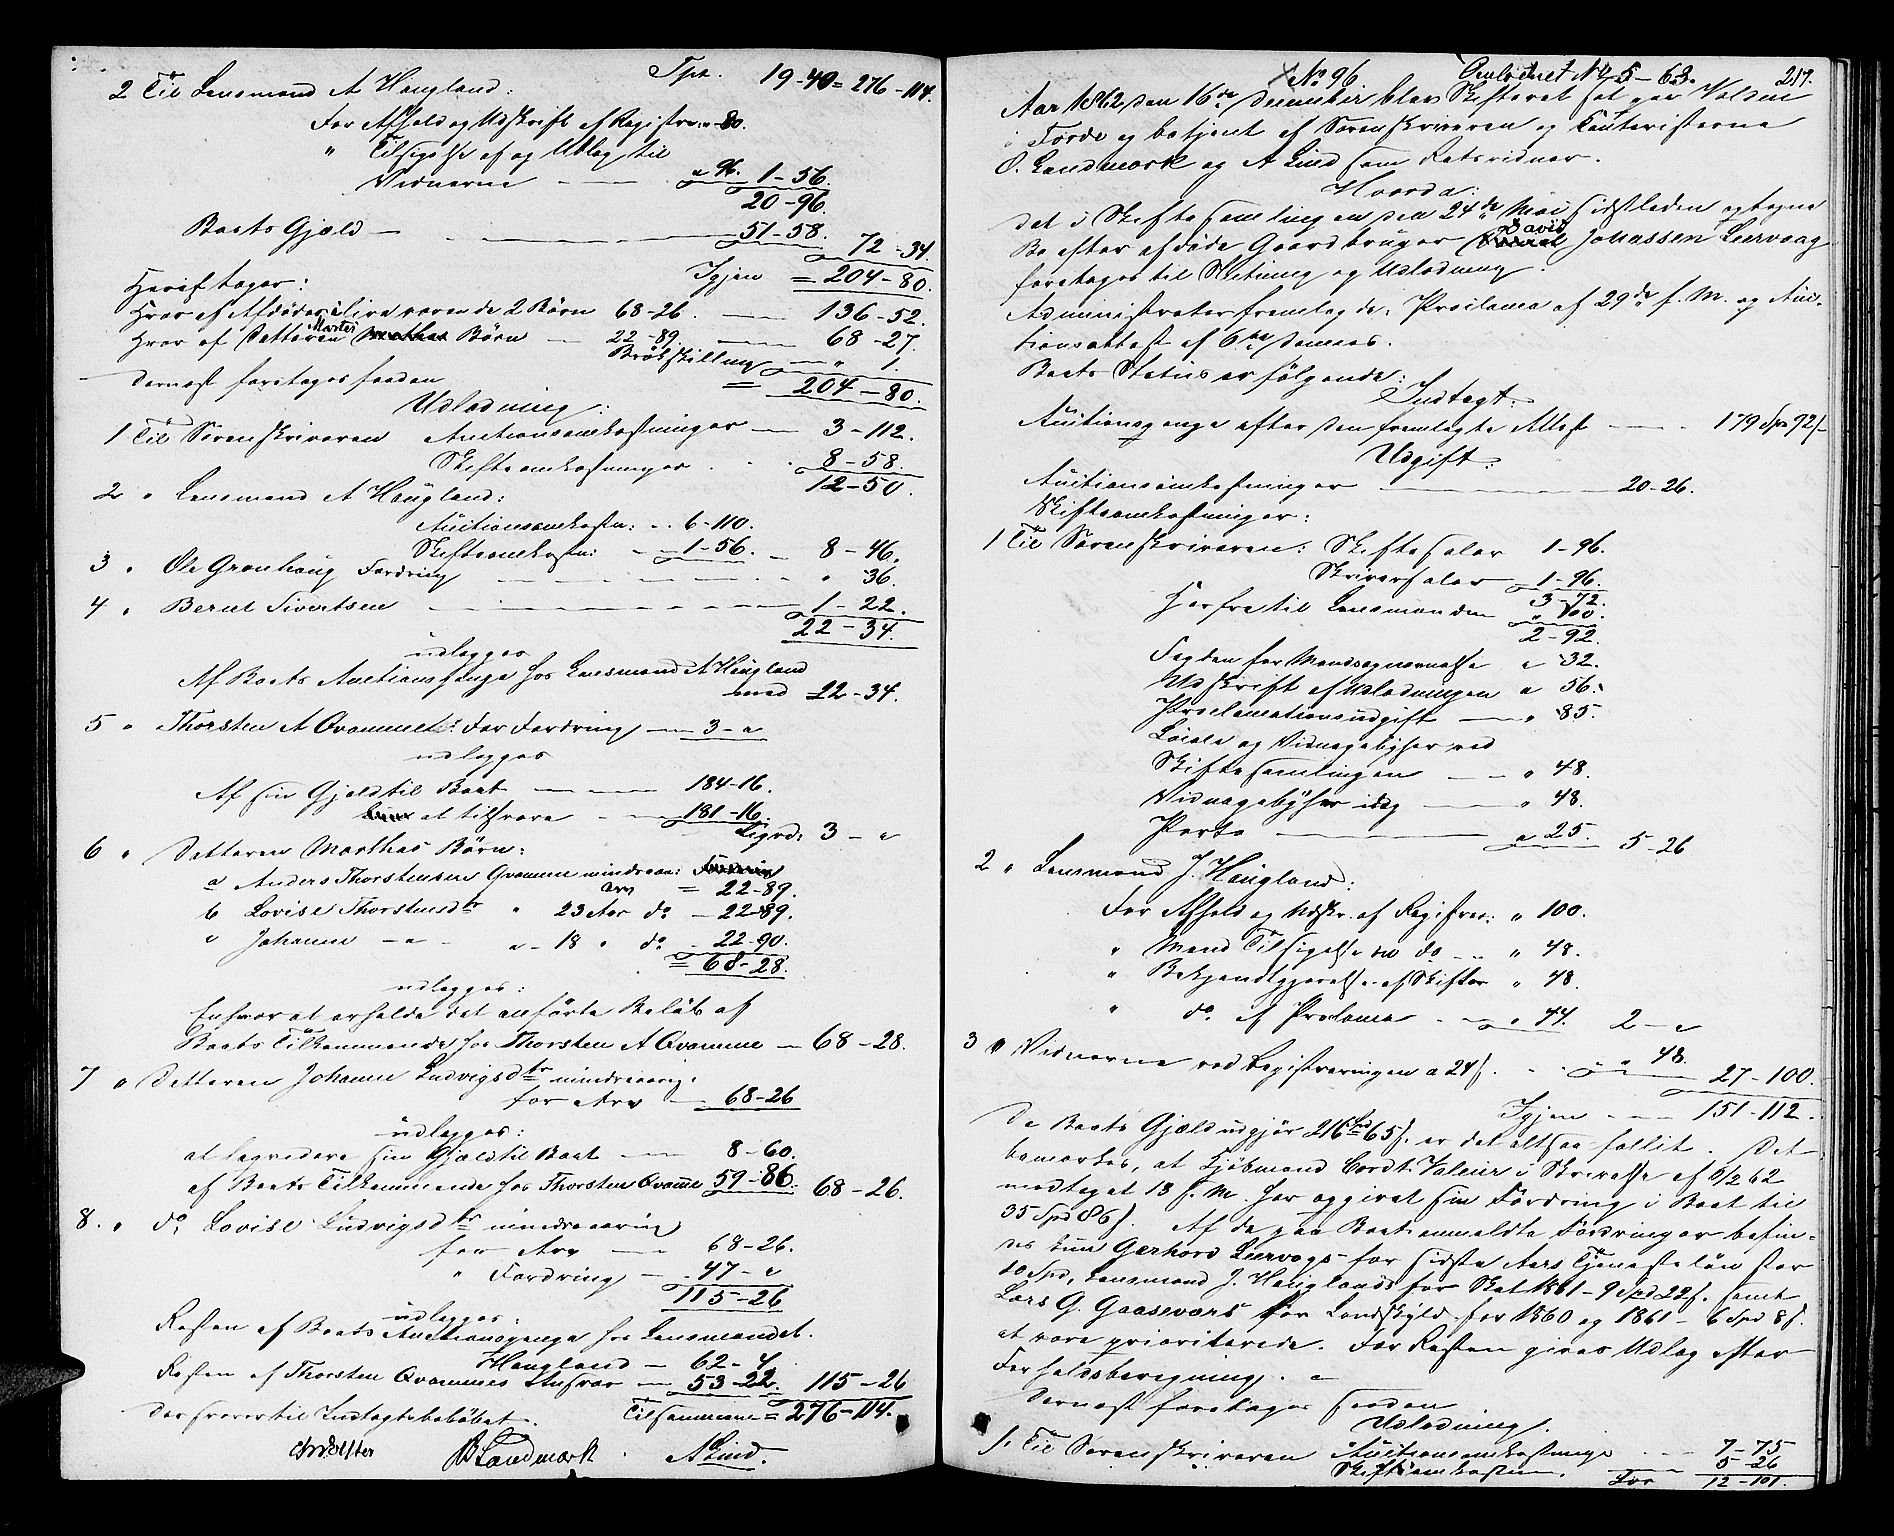 Tpt. 19-40 = 276-114.
2 Til Lensmand A Haugland:
For Afhold og Udskrift af Registr: - 80.
" Tilsigelse af og Udlæg til
Vidnerne — " 96. 1-56.
20-96.
Boets Gjæld — 51-58. 72-34.
Igjen = 204-80.
Heraf tager:
Hver af Afdødes ilive værende 2 Børn 68-26. — 136-52.
Hver af Datteren Marthes Børn — 22-89. — 68-27.
Brøkskilling — " 1.
= 204-80.
Dernæst foretages saadan
Udlodning:
1 Til Sorenskriveren Auctionsomkostninger — 3-112.
Skifteomkostninger . . 8-58.
12-50.
2 " Lensmand A Haugland:
Auctionsomkostn: . . 6-110.
Skifteomkostn: — 1-56. — 8-46.
3 " Ole Grønhaug Fordring — " 36.
4 " Bernt Sivertsen — 1-22.
22-34.
udlægges
Af Boets Auctionspenge hos Lensmand A Haugland
med 22-34.
5 " Thorsten A Qvamme: For Fordring — 3-"
udlægges
Af sin Gjæld til Boet — 184-16.
at tilsvare — 181-16.
Ligved: 3-"
6 " Datteren Marthas Børn:
a Anders Thorstensen Qvamme mindreaar:
Arv = 22-89.
b Lovise Thorstensdtr " 23 Aar do — 22-89.
c Johanne — " — " 18 " do — 22-90.
= 68-28.
udlægges:
Enhver at erholde det anførte Beløb af
Boets Tilkommende hos Thorsten A Qvamme — 68-28.
7 " Datteren Johanne Ludvigsdtr mindreaarig.
for Arv — 68-26
udlægges:
at liqvidere sin Gjæld til Boet — 8-60.
af Boets Tilkommende hos Thorsten Qvamme 59-86. 68-26.
8. " do Lovise Ludvigsdtr mindreaarig
for Arv — 68-26.
" Fordring — 47-"
115-26
udlægges:
Resten af Boets Auctionspenge hos Lensmandet.
Haugland — 62-4
Resten af Thorsten Qvammes Tilsvar — 53-22. 115-26
Der svarer til Indtægtsbeløbet. Tilsammen = 276-114.
B Landmark. A Lind.
No 96 217.
Aar 1862 den 16de December blev Skifteret sat paa Halden
i Førde og betjent af Sorenskriveren og Contoristerne
O. Landmark og A Lind som Retsvidner.
Hvorda:
det i Skiftesamlingen den 24de Mai sidstleden optagne
Bo efter afdøde Gaardbruger David Johassen Leervaag
foretages til Slutning og Udlodning.
Administrator fremlagde: Proclama af 29de f. M. og Auc-
tionsattest af 6te dennes.
Boets Status er følgende:
Indtægt:
Auctionspenge efter den fremlagte Attest — 179 Spd 92 s
Udgift:
Auctionsomkostninger — 20-26.
Skifteomkostninger:
1 Til Sorenskriveren: Skiftesalær 1-96.
Skriversalær — 1-96.
3-72.
Herfra til Lensmanden " 100.
2-92.
Fogden for Mandsopnævnelse " 32.
Udskrift af Udlodningen " 56.
Proclamationsudgift — " 85.
Locale og Vidnegebyhr ved
Skiftesamlingen — " 48.
Vidnegebyhr idag — " 48.
Porto — " 25. 5-26
2 " Lensmand J. Haugland:
For Afhold og Udskr. af Registr: " 100.
" Mænds Tilsigelse til do — " 48.
" Bekjendtgjørelse af Skiftet " 48.
" do. af Proclama — " 44. 2-"
3 " Vidnerne ved Registreringen a 24 s. . . " 48.
27-100.
Igjen — 151-112.
Da Boets Gjæld udgjør 216 Spd 65 s. er det altsaa fallit. Det
bemærkes, at Kjøbmand Cordt Valeur i Skrivelse af 6/12 62
modtaget 13 s. M. har opgivet sin Fordring i Boet til
35 Spd 86 s. Af de paa Boet anmeldte Fordringer befin-
des kun Gerhard Leervaags for sidste Aars Tjenesteløn stor
10 Spd, Lensmand J. Hauglands for Skat 1861 - 9 Spd 22 s. samt
Lars G. Gaaseværs for Landskyld for 1860 og 1861 - 6 Spd 8 s.
at være prioriterede. For Resten gives Udlæg efter
Forholdsberegning. —
Dernæst foretages saadan
Udlodning.
1. Til Sorenskriveren Auctionsomkostninge — 7-75
Skifteomkostn. 5-26
For 12-101.